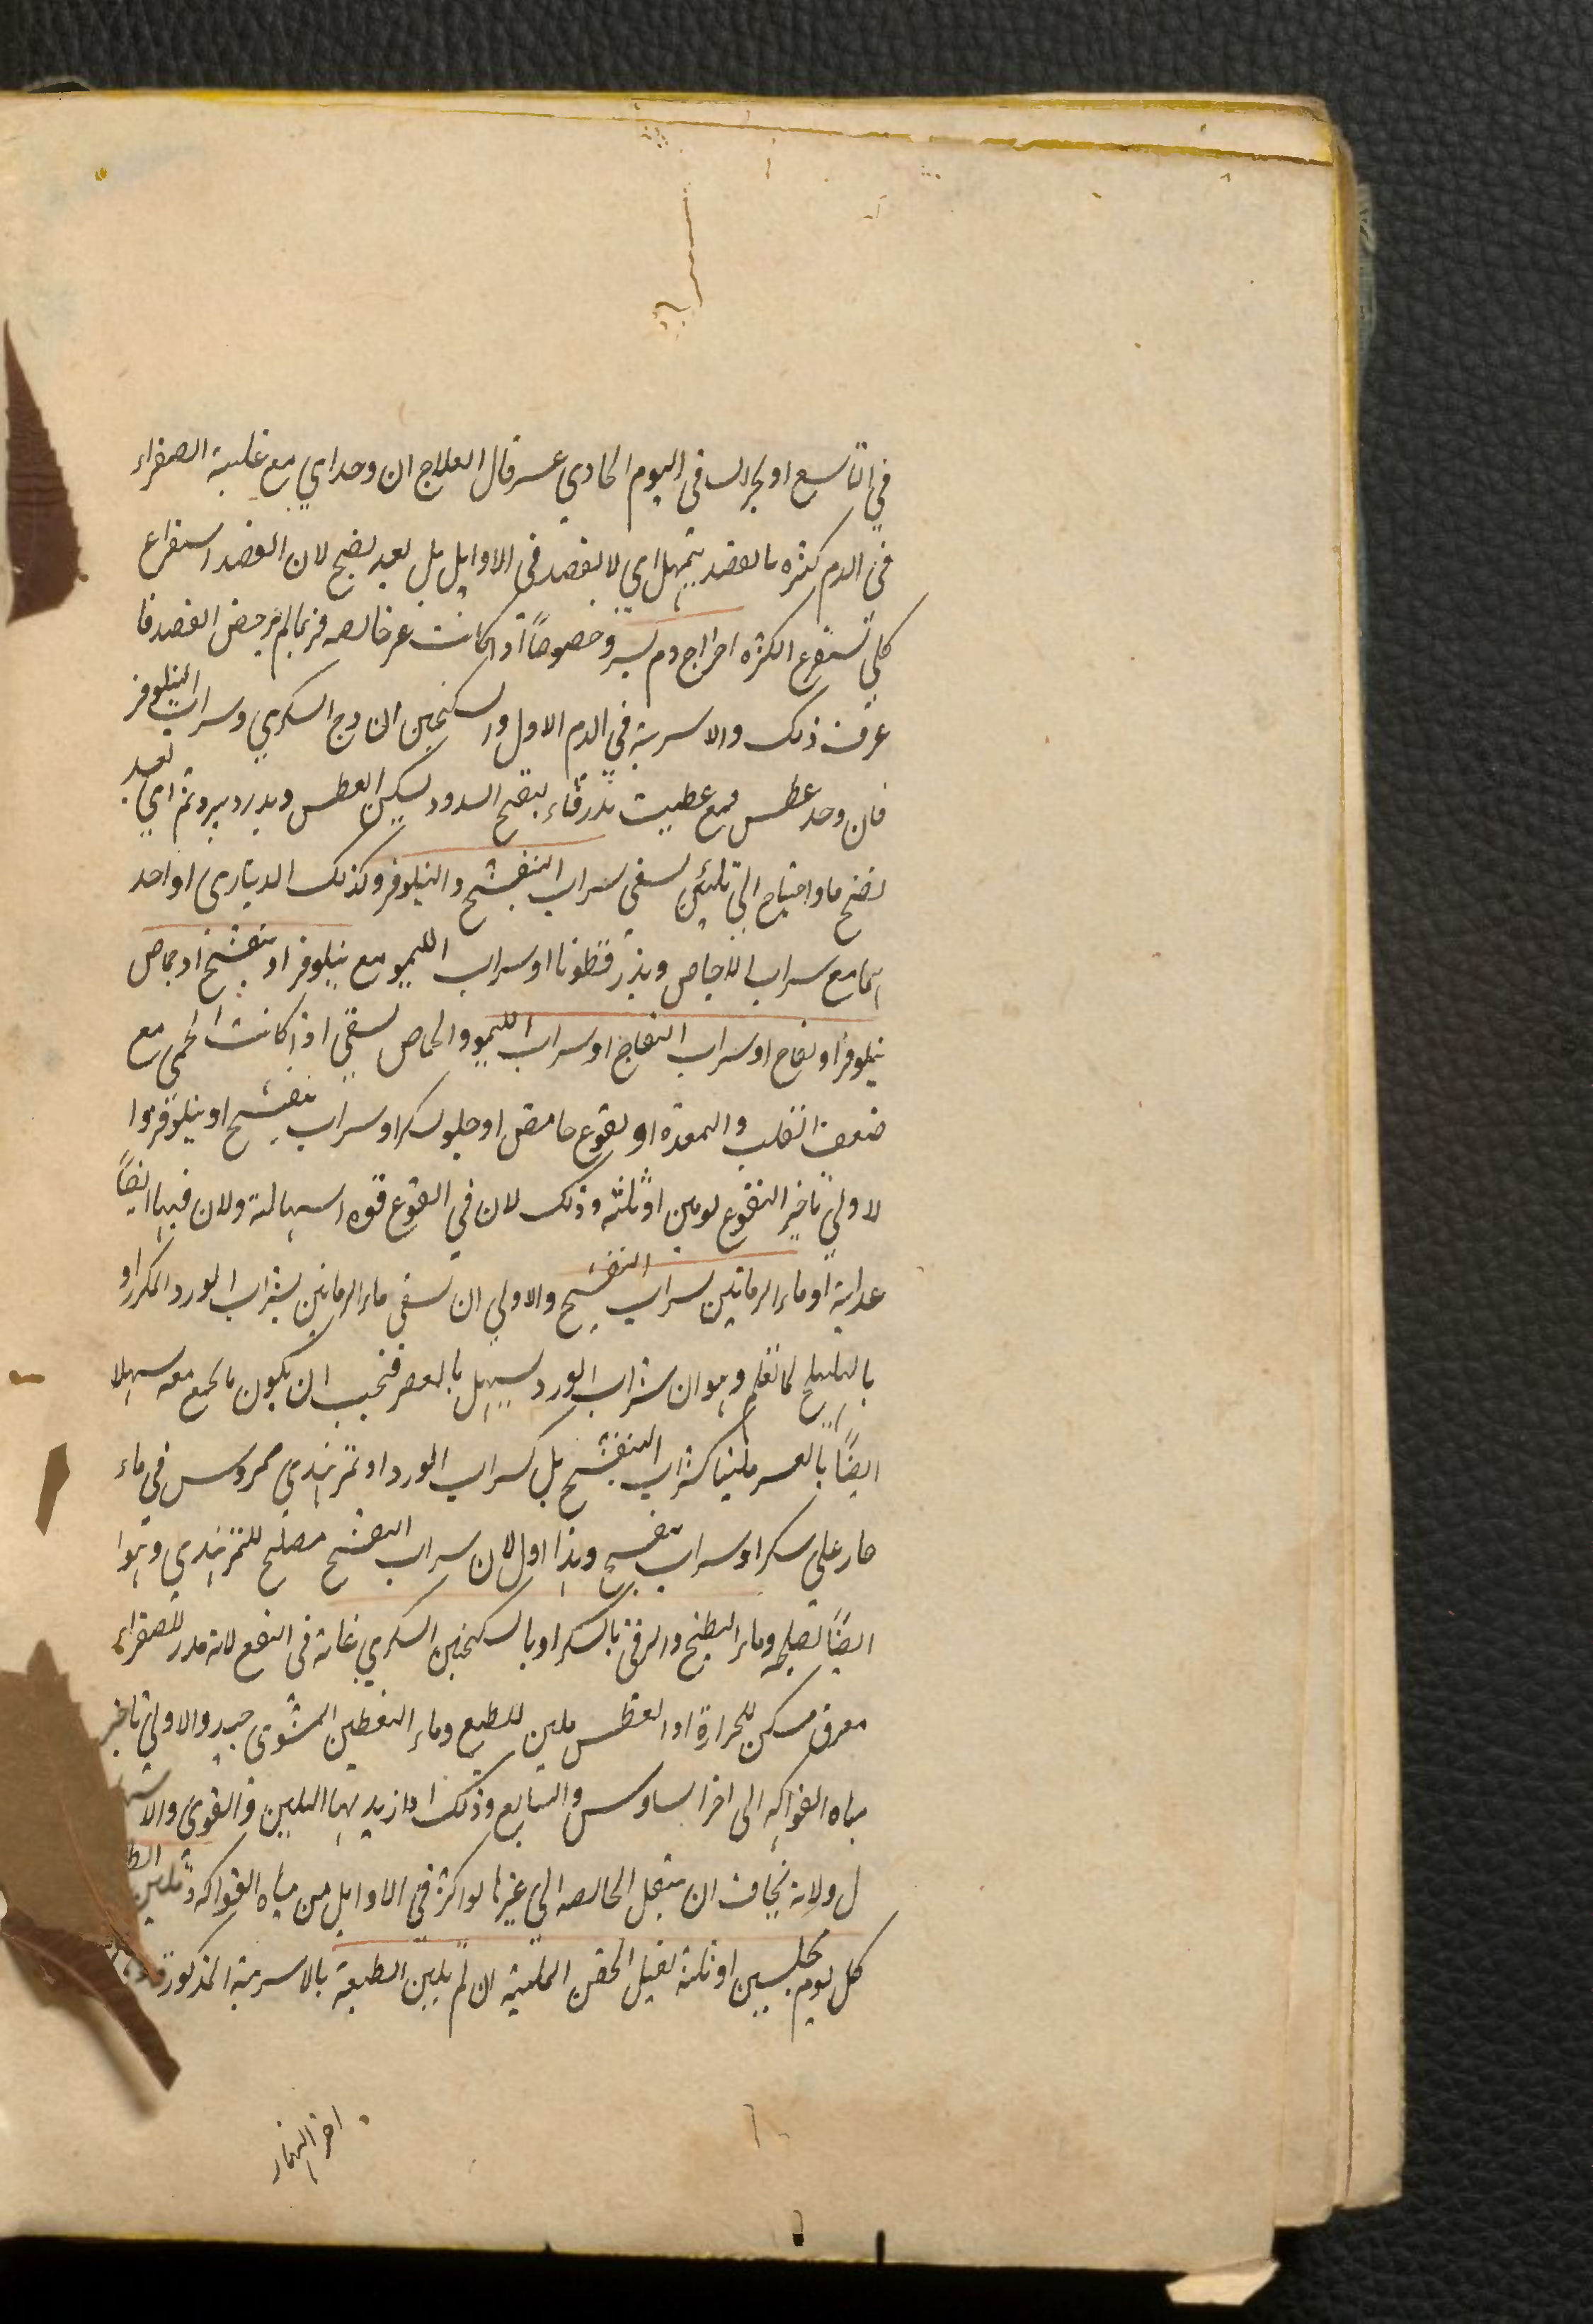 في التاسع او بحران في اليوم الحادي عسر قال العلاج ان وحد اي مع غلبة الصفراء
في الدم كثره بالفصد يتمهل اي لا بفصد في الاوايل بل بعد نضج لان الفصد استفراع
كلي تستفرع الكثره اخراج دم يسير وخصوصاً اذا كانت غير خالصه فربما لم يرخص الفصد فا
عرف ذلك والاسربة في الدم الاول والسكنجبين السادج السكري وسراب النيلوفر
فان وحد عطس فمع بتفتح السدود يسكن العطس ويدر ويبرد ثم اي بعد
نضج ما واحتياج الي تليين يسقى سراب البنفشج والنيلوفر وكذلك الديناري او احد
هما مع سراب الاجاص وبذر قطونا او سراب الليمو مع نيلوفر او بنفشج او حماض
نيلوفر او تفاح او سراب التفاح او سراب الليمو والحماض يسقي اذا كانت الحمى مع
ضعف القلب والمعده او نقوع حامض او حلو بسكر او سراب بنفشج او نيلوفر وا
لاولي تاخير النقوع يومين او ثلثه وذلك لان في النقوع قوه اسهالية ولان فيها ايضاً
غداية او ماء الرمانين بسراب البنفشج والاولي ان يسقي ماء الرمانين بشراب الورد المكرر او
بالهليلج لما تعلم وهو ان شراب الورد يسهل بالعصر فيجب ان يكون ما يجمع معه مسهلا
ايضاً بالعصر ملينا كشراب البنفشج بل كسراب الورد او تمر هندي ممروس في ماء
حار علي سكر او سراب بنفسج وهذا اول لان سراب البنفشج مصلح للتمر هندي وهوا
ايضاً يصلحه وماء البطيخ والرقي بالسكر او بالسكنجبين السكري غاية في النفع لانه مدر للصفراء
معرق مسكن للحرارة والعطس ملين للطبع وماء اليقطين المشوى جيد والاولي تاخير
مياه الفواكه الى اخر السادس والسابع وذلك اذا زيد بها التليين والقوي والاسها
ل ولانه يخاف ان ينتقل الخالصه الي غيرها لو اكثر في الاوايل من مياه الفواكه وتليين الط
كل يوم مجلسين او ثلثة بفتيل الحقن الملينة ان لم يلين الطبيعة بالاسربة المذكورة
اخر النهار